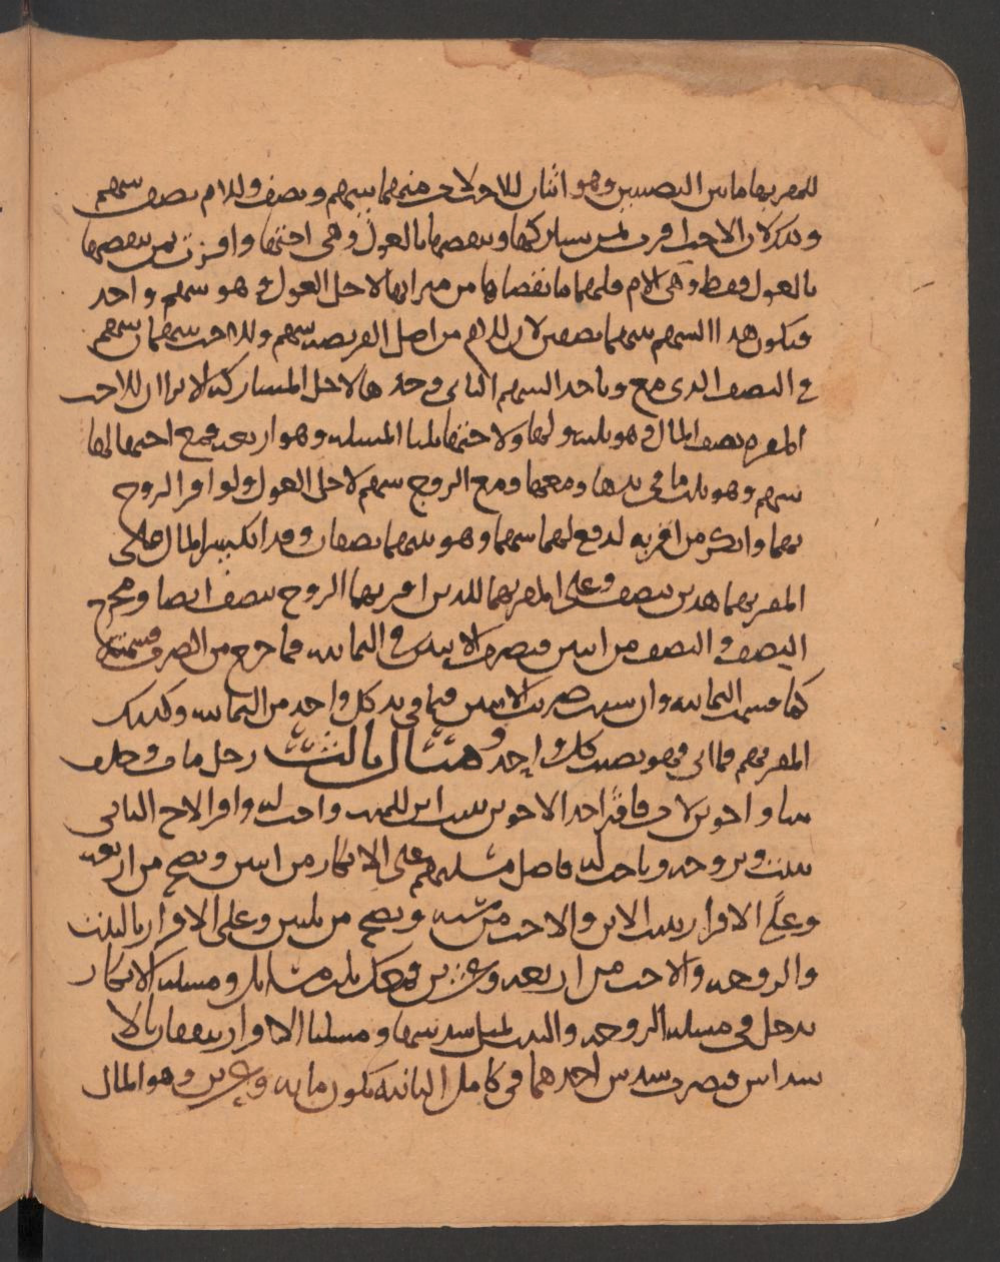 للمقر بهما ما بين النصيبين وهو اثنان للاخت لاب منهما سهم ونصف وللام نصف سهم
وذلك لان الاخت اقرت بمن يشاركها وينقصها بالعول وهي اختها واقرت بمن ينقصها
بالعول فقط وهي الام فلهما ما نقصاها من ميراثها لاجل العول وهو سهم واحد
فيكون هذا السهم بينهما نصفين لان للام من اصل الفريضة سهم وللاخت سهمان سهم
في النصف الذي مع وتاخذ السهم الثاني وحدها لاجل المشاركة الا ترا ان للاخت
المقره نصف المال وهو ثلثه ولها ولاختها ثلثا المسله وهو اربعه فمع اختها لها
سهم وهو ثلث ما في يدها ومعها ومع الزوج سهم لاجل العول ولو اقر الزوج
بهما وانكر من اقر به لدفع لهما سهما وهو بينهما نصفان وقد انكسر المال على
المقر بهما هذين بنصف وعلى المقر بهما للذين اقر بهما الزوج بنصف ايضا ومخرج
النصف والنصف من اثنين فتضرب الاثنين في الثمانيه فما خرج من الضرب قسمته
كما قسمت الثمانيه وان شيت ضربت الاثنين فيما في يد كل واحد من الثمانيه وكذلك
المقر بهم فما اتى فهو نصيب كل واحد ومثال ثالث رجل مات وخلف
بنتا واخوين لاب فاقر احد الاخوين ببنت ابن للميت واخت له واقر الاخ الثاني
ببنت وبزوجه وباخت له فاصل مسلتهم على الانكار من اثنين وتصح من اربعه
وعلى الاقرار ببنت الابن والاخت من سته وتصح من ثلثين وعلى الاقرار بالبنت
والزوجه والاخت من اربعه وعشرين فمعك ثلث مسائل ومسله الانكار
تدخل في مسله الزوجه والبنت لمثل سدسها ومسلتا الاقرار يتفقان بالا
سداس فتضرب سدس احدهما في كامل الثانيه تكون مايه وعشرين وهو المال